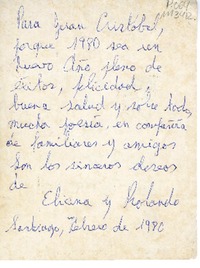 Para Juan Cristóbal,
porque 1980 sea un
nuevo Año pleno de
éxitos, felicidad,
buena salud y sobre todo,
mucha poesía, en compañía
de familiares y amigos
Son los sinceros deseos
de
Eliana y Rolando
Santiago, febrero de 1980